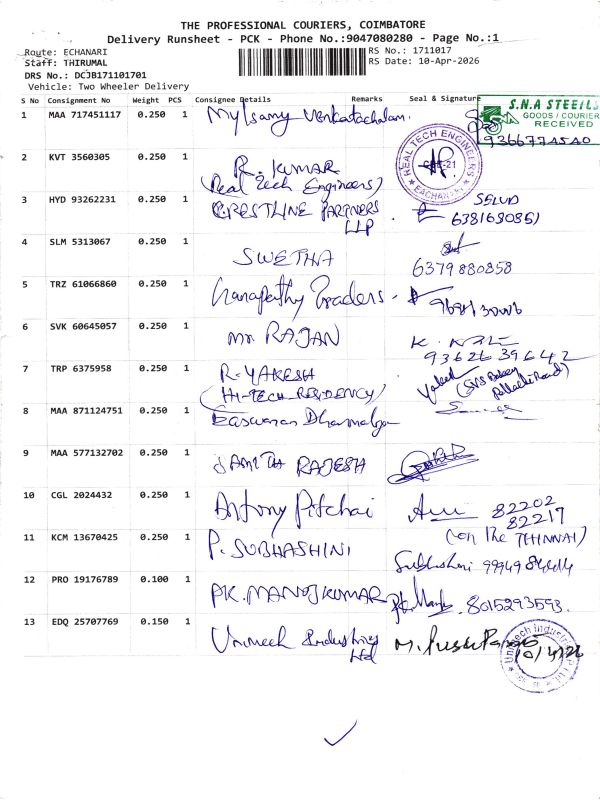 THE PROFESSIONAL COURIERS, COIMBATORE
Delivery Runsheet - PCK - Phone No.:9047080280 - Page No.:1
Route: ECHANARI
RS No.: 1711017
Staff: THIRUMAL
RS Date: 10-Apr-2026
DRS No.: DCJB171101701
Vehicle: Two Wheeler Delivery
S No Consignment No Weight PCS Consignee Details Remarks Seal & Signature
S.N.A STEEILS
GOODS / COURIER
RECEIVED
1 MAA 717451117 0.250 1 Mylsamy Venkatachalam.
REAL TECH ENGINEERS
2 KVT 3560305 0.250 1 R. KUMAR
(Real Tech Engineers)
3 HYD 93262231 0.250 1 CRESTLINE PARTNERS LLP
4 SLM 5313067 0.250 1 SWETHA
6379880858
5 TRZ 61066860 0.250 1 Ganapathy Traders -
6 SVK 60645057 0.250 1 Mr. RAJAN
9362639642
7 TRP 6375958 0.250 1 R. YAKESH
(HI-TECH RESIDENCY)
8 MAA 871124751 0.250 1 Easwaran
9 MAA 577132702 0.250 1 RAJESH
10 CGL 2024432 0.250 1 Antony Pitchai
82202
82217
(on the THINNAI)
11 KCM 13670425 0.250 1 P. SUBHASHINI
12 PRO 19176789 0.100 1 PK. MANOJKUMAR
8015293593.
13 EDQ 25707769 0.150 1 Unitech Industries Ltd